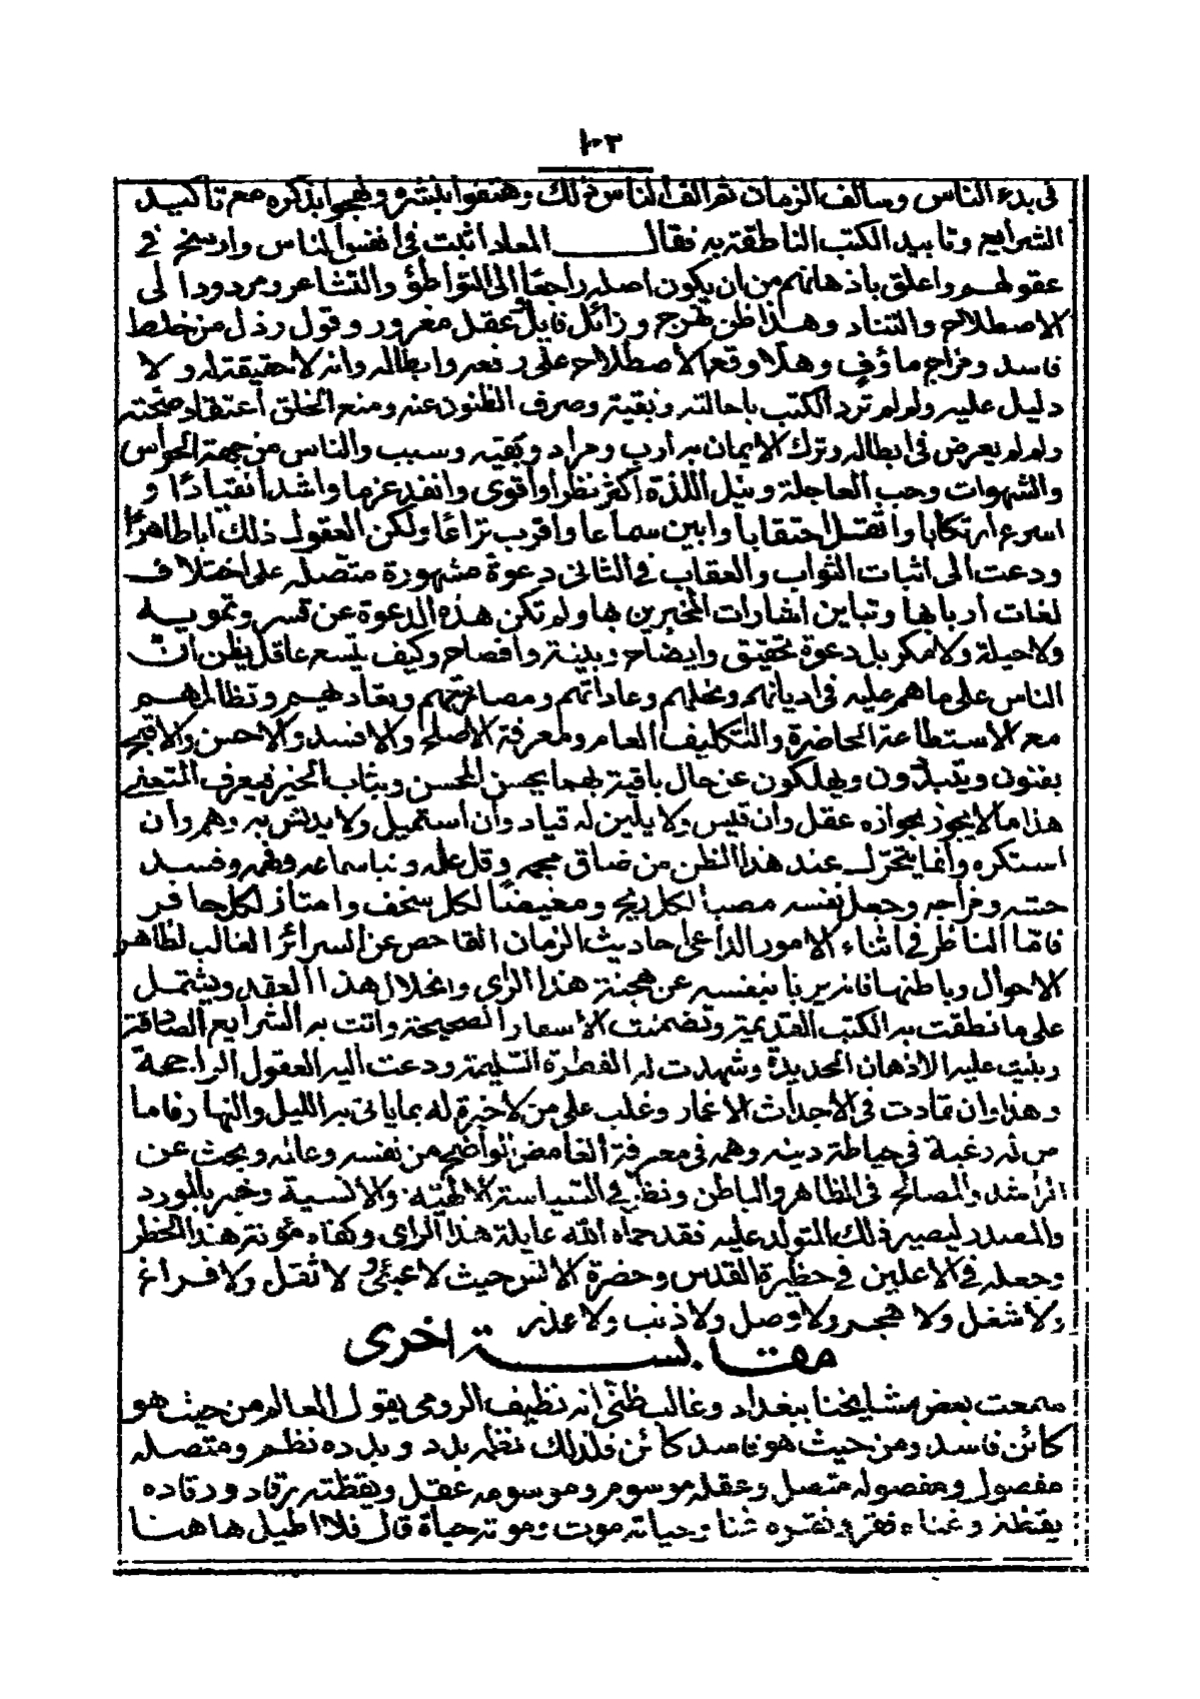 ١٠٣
فى بدء الناس وسالف الزمان ثم الف الناس ذلك وهتفوا بنشره ولهجوا بذكره مع تأكيد
الشرايع وتاييد الكتب الناطقة به فقال المعاد اثبت فى انفس الناس وارسخ فى
عقولهم واعلق باذهانهم من ان يكون اصله راجعا الى التواطؤ والتشاعر ومردودا الى
الاصطلاح والتناد وهذا ظن بهرج وزائل قايل عقل مغرور وقول رذل من خلط
فاسد ومزاج ماؤف وهلا وقع الاصطلاح على رفعه وابطاله وانه لاحقيقة له ولا
دليل عليه ولو لم ترد الكتب باحالته وبقيته وصرف الظنون عنه ومنع الخلق اعتقاد صحته
ولو لم يعرض فى ابطاله وترك الايمان به أرب ومراد وبقيه وسبب والناس من جهة الحواس
والشهوات وحب العاجلة ونيل اللذة اكثر نظرا واقوى وانفد عزما واشد انقيادًا و
اسرع ارتكابا واثقل احتقابا وابين سماعا واقرب نزاعًا ولكن العقول ذلك اباطاهرًا
ودعت الى اثبات الثواب والعقاب فى الثانى دعوة مشهورة متصله على اختلاف
لغات أربابها وتباين اشارات المخبرين بها ولم تكن هذه الدعوة عن قسر وتمويه
ولاحيلة ولامكر بل دعوة تحقيق وايضاح وبينة وافصاح وكيف يتسع عاقل يظن ان
الناس على ماهم عليه فى اديانهم ونحلهم وعاداتهم ومصائرتهم وبعادلهم وتظالمهم
مع الاستطاعة الحاضرة والتكليف العام ومعرفة الاصلح والافسد والاحسن والاقبح
يفنون ويتبددون ويهلكون عن حال باقية بهما يحسن المحسن ويثاب الخير فيعرف المتعنى
هذا مالا يجوز بجوازه عقل وان قيس ولا يلين له قياد وان استميل ولا يدنس به وهم وان
استكره وانما يتحرك عند هذا الظن من ضاق مجمه وقل علمه ونبا سماعه وفهمه وفسد
حسه ومزاجه وجعل نفسه مصبا لكل ريح ومغيضًا لكل سخف وامتاز لكل حافر
فامّا الناظر فى اثناء الامور الداعى احاديث الزمان الفاحص عن السرائر الغالب لظاهر
الاحوال وباطنها فانه يربا بنفسه عن هجنة هذا الراى وانحلال هذا العقد ويشتمل
على ما نطقت به الكتب القديمة وتضمنت الأسعار الصحيحة واتت به الشرايع الصادقة
وبنيت عليه الاذهان الحديدة وشهدت له الفطرة السليمة ودعت اليه العقول الراجحة
وهذا وان تمادت فى الاحداث الاغمار وغلب على من لاخبرة له بما ياتى به الليل والنهار فاما
من له رغبة فى حياطة دينه وهمه فى معرفة الغامض الواضح من نفسه وعانه وبحث عن
المراشد والمصالح فى الظاهر والباطن ونظر فى السياسة الالهيّه والانسية وخبر بالمورد
والمصدر ليصير ذلك المتولد عليه فقد حماه الله عايلة هذا الراى وكفاه مؤنة هذا الخطر
وجعله فى الاعلين فى حظيرة القدس وحضرة الانس حيث لا عبئ ولا ثقل ولافراغ
ولاشغل ولا هجر ولا وصل ولاذنب ولاعذر
مقابسة اخرى
سمعت بعض مشايخنا ببغداد وغالب ظنى انه نظيف الرومى يقول العالم من حيث هو
كائن فاسد ومن حيث هو فاسد كائن فلذلك نظمه بدد وبدده نظم ومتصله
مفصول ومفصوله متصل وغفله موسوم وموسومه غفل ويقظته رقاد ورقاده
يقظة وغناه فقر وفقره غنا وحياته موت وموته حياة قال فلا اطيل هاهنا